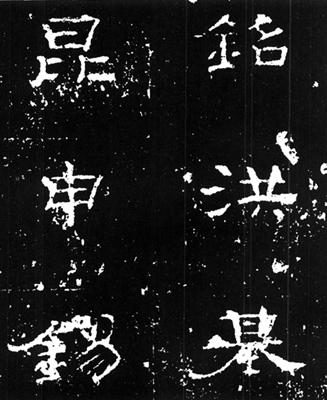 銘洪基
昆申錫